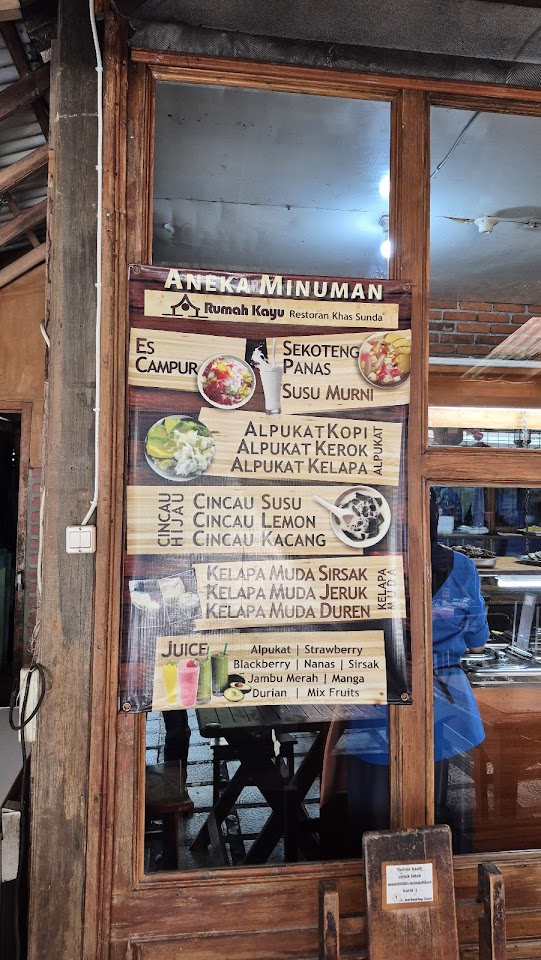 ANEKA MINUMAN
Rumah Kayu Restoran Khas Sunda
ES
CAMPUR
SEKOTENG
PANAS
SUSU MURNI
ALPUKAT KOPI
ALPUKAT KEROK
ALPUKAT KELAPA
ALPUKAT
CINCAU
HIJAU
CINCAU SUSU
CINCAU LEMON
CINCAU KACANG
KELAPA MUDA SIRSAK
KELAPA MUDA JERUK
KELAPA MUDA DUREN
KELAPA
MUDA
JUICE
Alpukat | Strawberry
Blackberry | Nanas | Sirsak
Jambu Merah | Manga
Durian | Mix Fruits
Terima kasih
untuk tidak
memindahkan
kursi